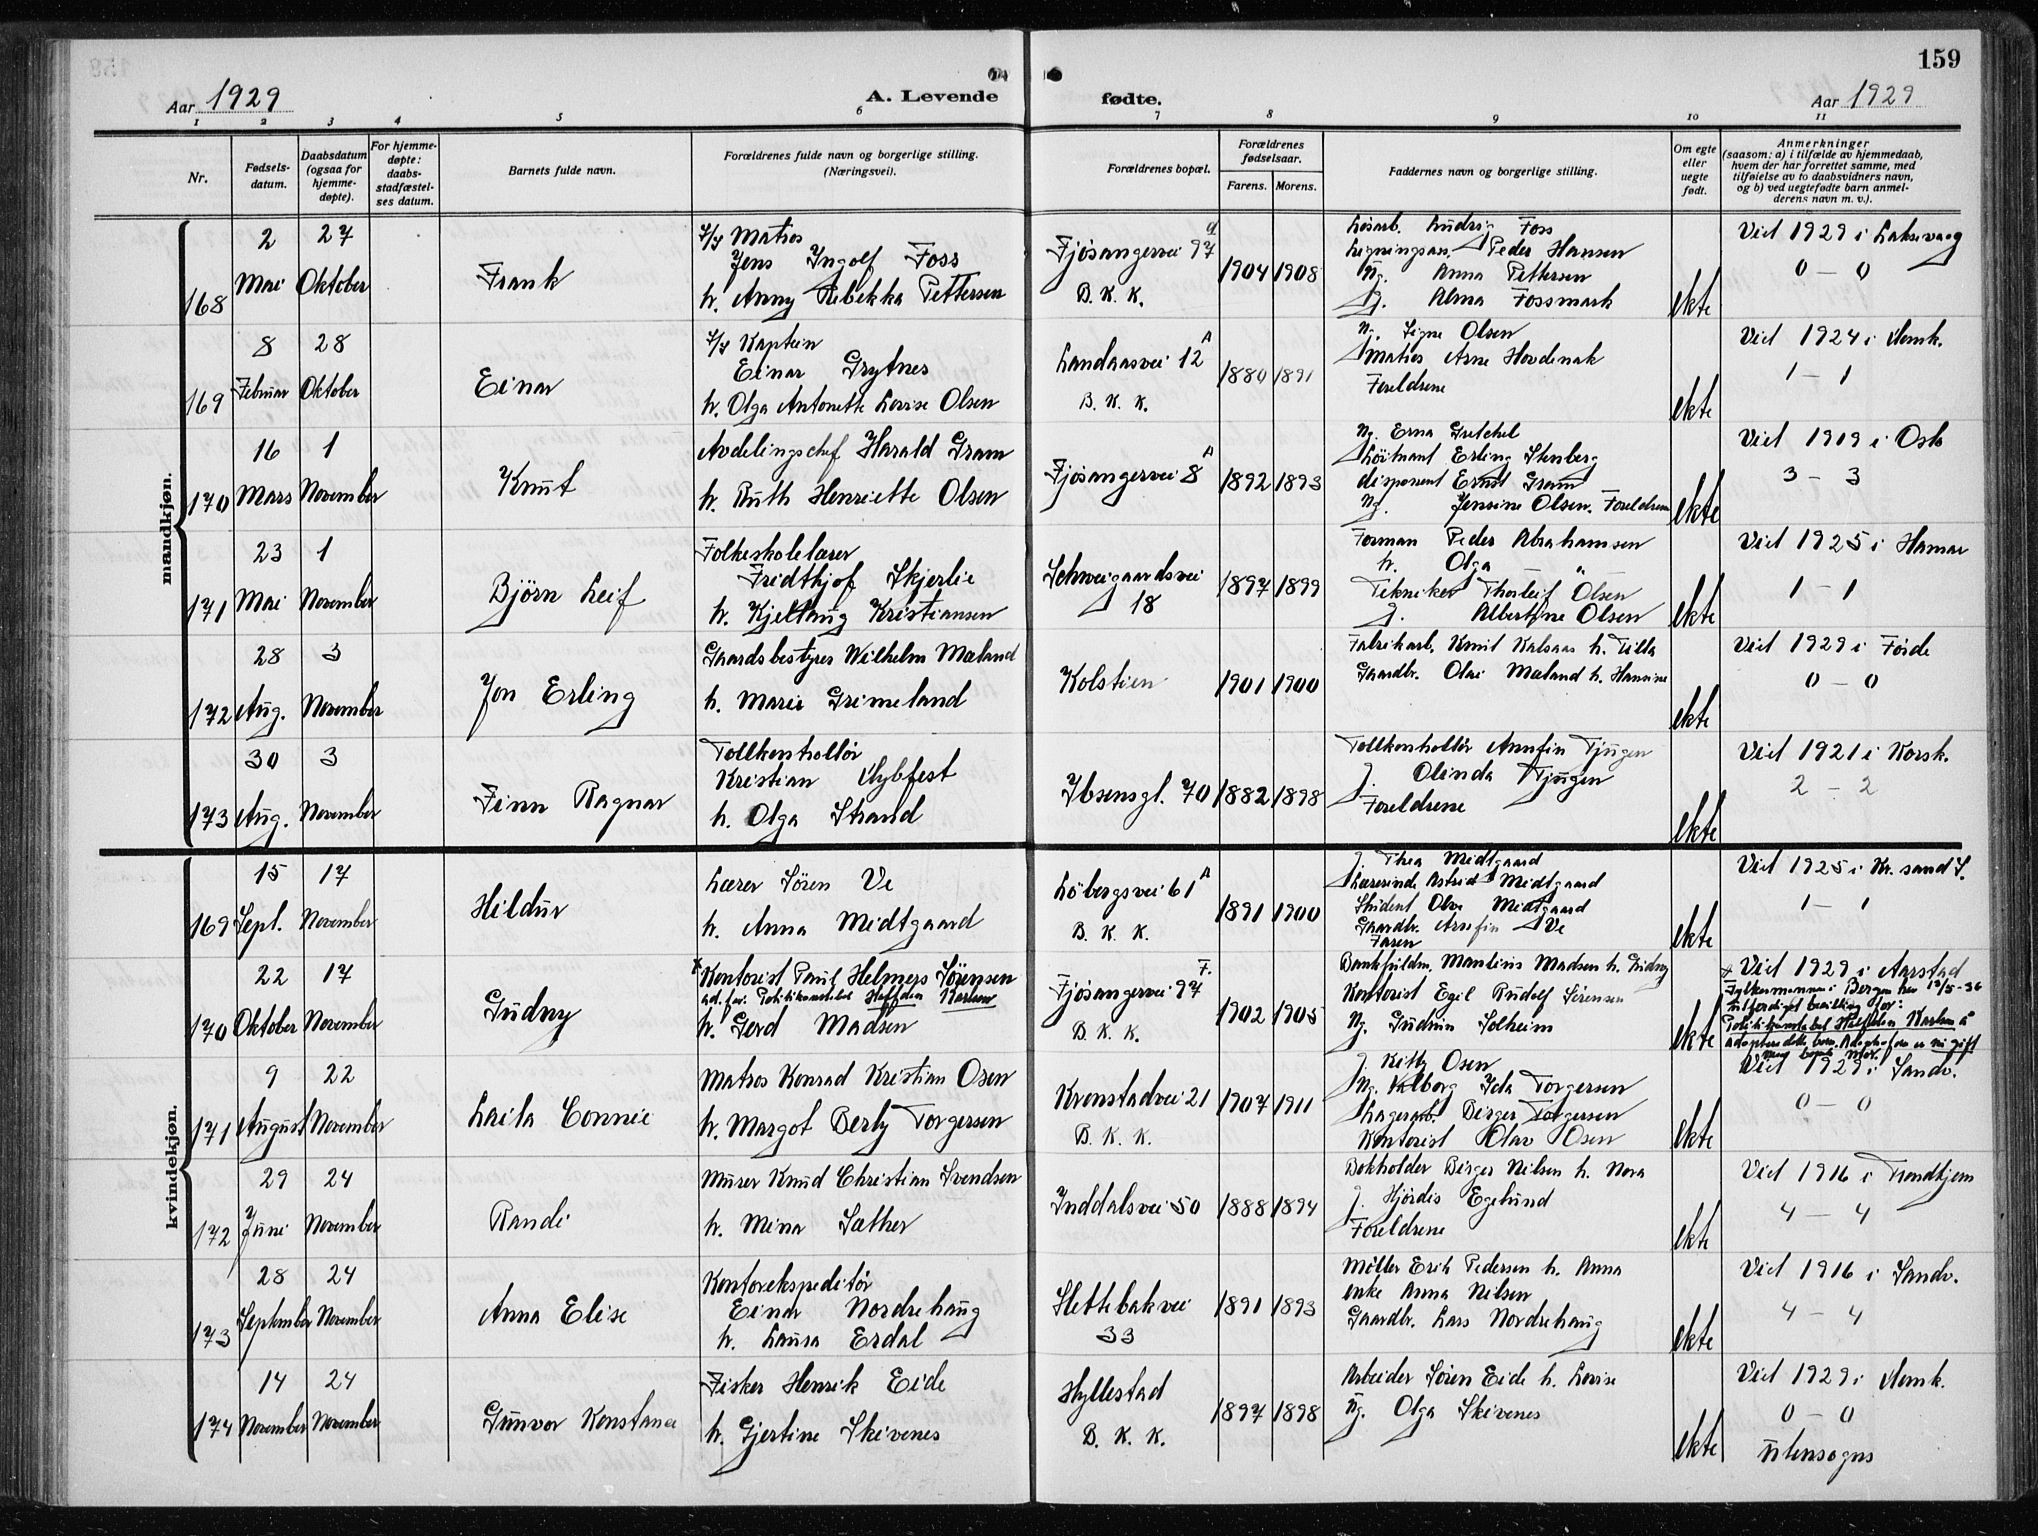 159
Aar 1929
A. Levende
fødte.
Aar 1929
1 2 3 4 5 6 7 8 9 10 11
Nr.
Fødsels-
datum.
Daabsdatum
(ogsaa for
hjemme-
døpte).
For hjemme-
døpte:
daabs-
stadfæstel-
ses datum.
Barnets fulde navn.
Forældrenes fulde navn og borgerlige stilling.
(Næringsvei).
Forældrenes bopæl.
Forældrenes
fødselsaar.
Farens. Morens.
Faddernes navn og borgerlige stilling.
Om egte
eller
uegte
født.
Anmerkninger
(saasom: a) i tilfælde av hjemmedaab,
hvem der har forrettet samme, med
tilføielse av to daabsvidners navn,
og b) ved uegtefødte barn anmel-
derens navn m. v.).
mandkjøn.
168
2
Mai
27
Oktober
Frank
Matros
Jens Ingolf Foss
h. Anny Rebekka Pettersen
Fjøsangervei 97
B. K. K.
1904 1908
Løsarb. Ludvig Foss
Ligningsass. Peder Hansen
Ug. Anna Pettersen
J. Alma Fossmark
ekte
Viet 1929 i Laksevaag
0 – 0
169
8
Februar
28
Oktober
Einar
Kaptein
Einar Grytnes
h. Olga Antonette Lovise Olsen
Landaasvei 12 A
B. K. K.
1880 1891
Ug. Signe Olsen
Matros Arne Hovdenak
Foreldrene
ekte
Viet 1924 i
1 – 1
170
16
Mars
1
November
Knut
Avdelingschef Harald Gram
h. Ruth Henriette Olsen
Fjøsangervei 8 A
1892 1893
Ug. Erna Gretchel
Løitnant Erling Stenberg
disponent Ernst Gram
Ug. Jensine Olsen. Foreldrene
ekte
Viet 1919 i Oslo
3 – 3
171
23
Mai
1
November
Bjørn Leif
Folkeskolelærer
Fridthjof Skjerlie
h. Kjellaug Kristiansen
Schweigaardsvei
18
1897 1899
Forman Peder Abrahamsen
h. Olga "
Tekniker Thorleif Olsen
J. Albertine Olsen
ekte
Viet 1925 i Hamar
1 – 1
172
28
Aug.
3
November
Jon Erling
Gaardsbestyrer Wilhelm Mæland
h. Marie Grimeland
Kolstien
1901 1900
Fabrikarb. Knut Kalsaas h. Tilla
Gaardbr. Olai Mæland h. Hansine
ekte
Viet 1929 i Førde
0 – 0
173
30
Aug.
3
November
Finn Ragnar
Tollkontrollør
Kristian Mybfest
h. Olga Strand
Ibsensgt. 70
1882 1898
Tollkontrollør Annfin Tjugen
J. Olinda Tjugen
Foreldrene
ekte
Viet 1921 i Korsk.
2 – 2
kvindekjøn.
169
15
Sept.
17
November
Hildur
Lærer Søren Ve
h. Anna Midtgaard
Løbergsvei 61 A
B. K. K.
1891 1900
J. Thea Midtgaard
Lærerinde Astrid Midtgaard
Student Olav Midtgaard
Gaardbr. Arnfin Ve
Faren
ekte
Viet 1925 i Kr. sand S.
1 – 1
170
22
Oktober
17
November
Gudny
x Kontorist Paul Helmers Sörensen
ad. far. Politikonstabel Halfdan Karlsen
h. Gerd Madsen
Fjøsangervei 97 F.
B. K. K.
1902 1905
Bankfuldm. Mantinis Madsen h. Gudny
Kontorist Egil Rudolf Sørensen
Ug. Gudrun Solheim
ekte
x Viet 1929 i Aarstad
Fylkesmannen i Bergen har 12/5-36
utferdiget bevilling for:
Politikonstabel Halfdan Karlsen å
adoptere dette barn. Adoptivfaren er nu gift
med barnets mor.
171
9
August
22
November
Laila Connie
Matros Konrad Kristian Osen
h. Margot Berly Torgersen
Kronstadvei 21
B. K. K.
1907 1911
J. Kitty Osen
Ug. Valborg Ida Torgersen
Lagerarb. Birger Torgersen
Kontorist Olav Osen
ekte
Viet 1929 i Sandv.
0 – 0
172
29
Juni
24
November
Randi
Murer Knud Christian Svendsen
h. Mina Sæther
Inddalsvei 50
1888 1894
Bokholder Birger Nilsen h. Nora
J. Hjørdis Egelund
Foreldrene
ekte
Viet 1916 i Trondhjem
4 – 4
173
28
September
24
November
Anna Elise
Kontorekspeditør
Einar Nordrehaug
h. Laura Erdal
Slettebakvei
33
1891 1893
Møller Erik Pedersen h. Anna
enke Anna Nilsen
Gaardbr. Lars Nordrehaug
ekte
Viet 1916 i Sandv.
4 – 4
174
14
November
24
November
Gunvor Konstance
Fisker Henrik Eide
h. Gjertine Skivenes
Hyllestad
B. K. K.
1897 1898
Arbeider Søren Eide h. Lovise
Ug. Olga Skivenes
ekte
Viet 1929 i
0 – 0
utensogns